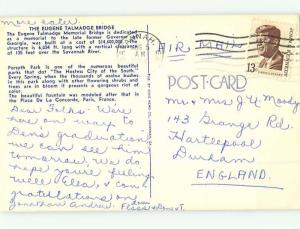 more later.
THE EUGENE TALMADGE BRIDGE
The Eugene Talmadge Memorial Bridge is dedicated
as a memorial to the late former Governor of
Georgia, was built at a cost of $14,600,000. The
structure is 6,034 ft. long with a vertical clearance
of 135 feet over the Savannah River.
Forsyth Park is one of the numerous beautiful
parks that dot "The Hostess City of the South."
Every Spring, when the thousands of azalea bushes
in this park along with other flowering shrubs
and trees are in bloom it presents a gorgeous riot of
color.
The beautiful fountain was modeled after that in
the Place De La Concorde, Paris, France.
AIR MAIL
13
POST-CARD
Dear Folks: We're
here on way to
Don's graduation
we can see him
tomorrow. We do
hope you're feeling
well Ella, & con-
gratulations on
Jonathan Andrew.
Mr & Mrs J. G. Moody
143 Grange Rd.
Hartlepool
Durham
ENGLAND.